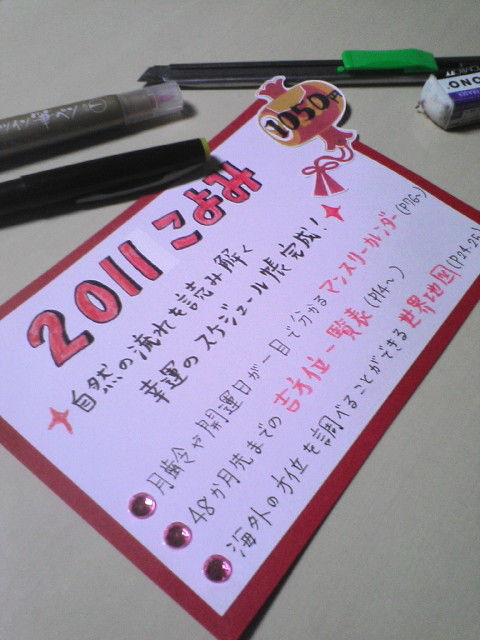 1050円
2011 こよみ
自然の流れを読み解く
幸運のスケジュール帳完成!
月齢や開運日が一目で分かるマンスリーカレンダー(P76〜)
48か月先までの吉方位一覧表(P14〜)
海外の方位を調べることができる世界地図(P24.25)
ツイン